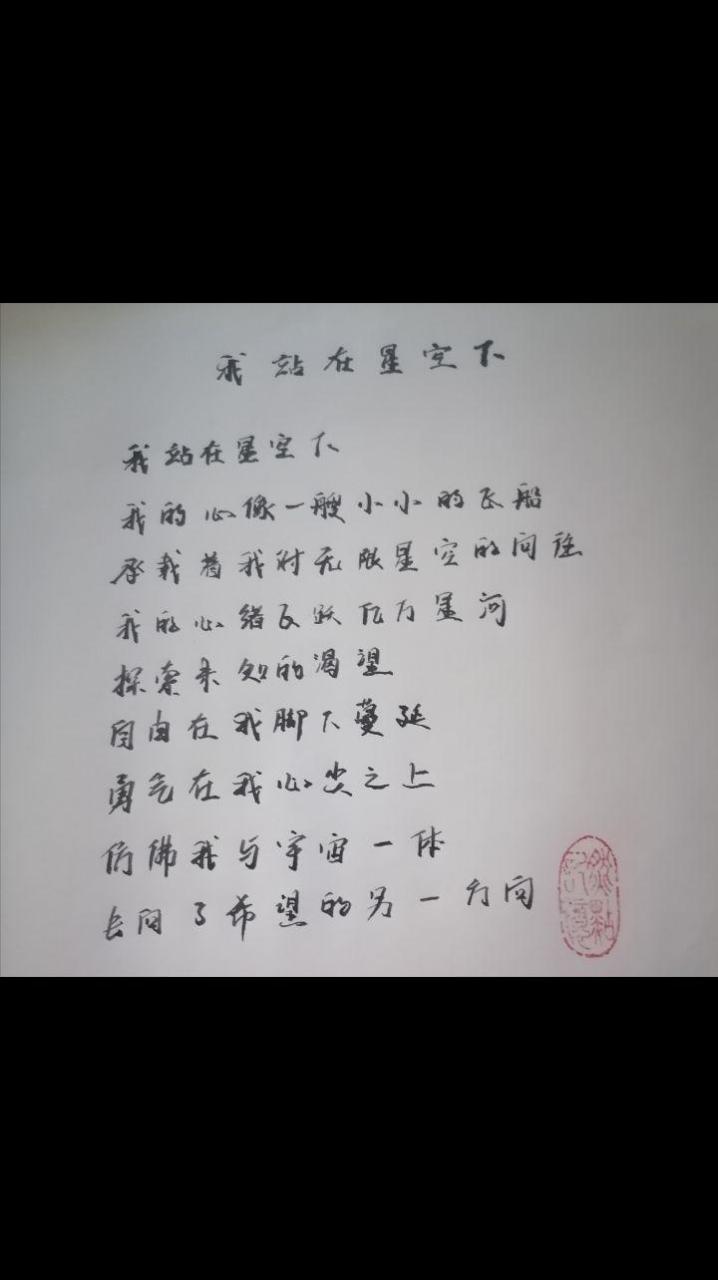 我站在星空下
我站在星空下
我的心像一艘小小的飞船
承载着我对无限星空的向往
我的心绪飞跃亿万星河
探索未知的渴望
自由在我脚下蔓延
勇气在我心尖之上
仿佛我与宇宙一体
去向了希望的另一方向